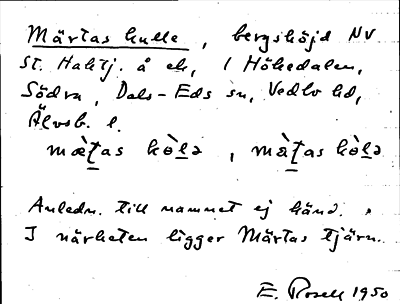 Märtas kulle, bergshöjd NV
St. Haktj. å ek, i Hökedalen,
Södra, Dals-Eds sn, Vedbo hd,
Älvsb. l.
mæ̀ṯas kòḻə, mà̀ṯas kòḻə
Anledn. till namnet ej känd.
I närheten ligger Märtas tjärn.
E. Rosell 1950